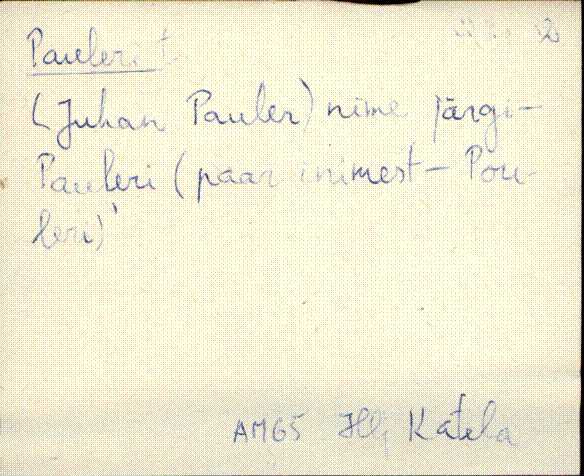 Pauleri t.
(Juhan Pauler) nime järgi -
Pauleri (paar inimest - Pou-
leri)
AM65 Hlj Katela